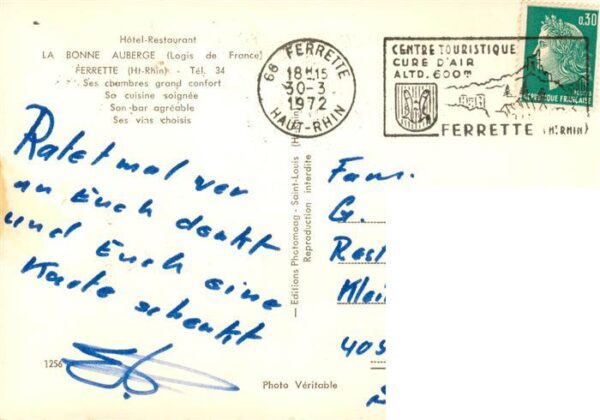 Hôtel-Restaurant
LA BONNE AUBERGE (Logis de France)
FERRETTE (Ht-Rhin) - Tél. 34
Ses chambres grand confort
Sa cuisine soignée
Son bar agréable
Ses vins choisis
68 FERRETTE
18H15
30-3
1972
HAUT-RHIN
CENTRE TOURISTIQUE
CURE D'AIR
ALTD. 600m
FERRETTE (HT RHIN)
0,30
REPUBLIQUE FRANÇAISE
Ratet mal wer
an Euch denkt
und Euch eine
Karte schenkt
1256
Editions Photomaag - Saint-Louis (H
Reproduction interdite
Fam.
G.
Rest
Klei
405
Photo Véritable